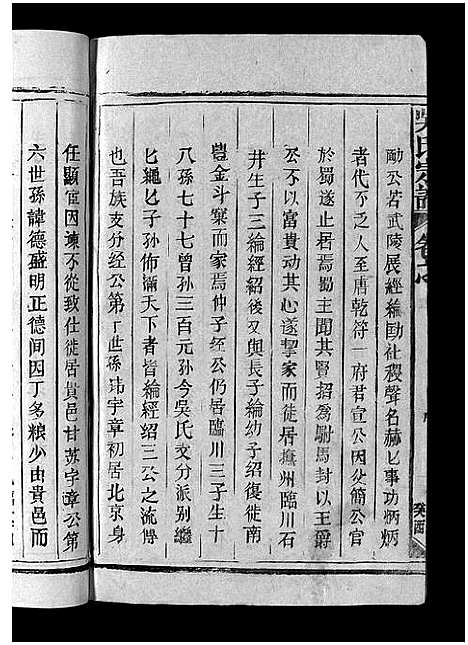 吳氏宗譜
卷之首
癸酉
勔公若武陵展經綸勛社稷聲名赫匕事功炳炳
者代不乏人至唐乾符一府君宣公因父簡公官
於蜀遂止居焉蜀主聞其賢招為駙馬封以王爵
公不以富貴动其心遂挈家而徒居撫州臨川石
井生子三綸經紹後又與長子綸幼子绍復徙南
豐金斗窠而家焉仲子經公仍居臨川三子生十
八孫七十七曾孙三百元孙今吳氏支分派别繼
匕繩匕子孙佈滿天下者皆綸經绍三公之流傳
也吾族支分经公第丁世孫讳宇章初居北京身
任顯宦因諫不從致仕徙居貴邑甘苏宇章公第
六世孫諱德盛明正德间因丁多粮少由貴邑而